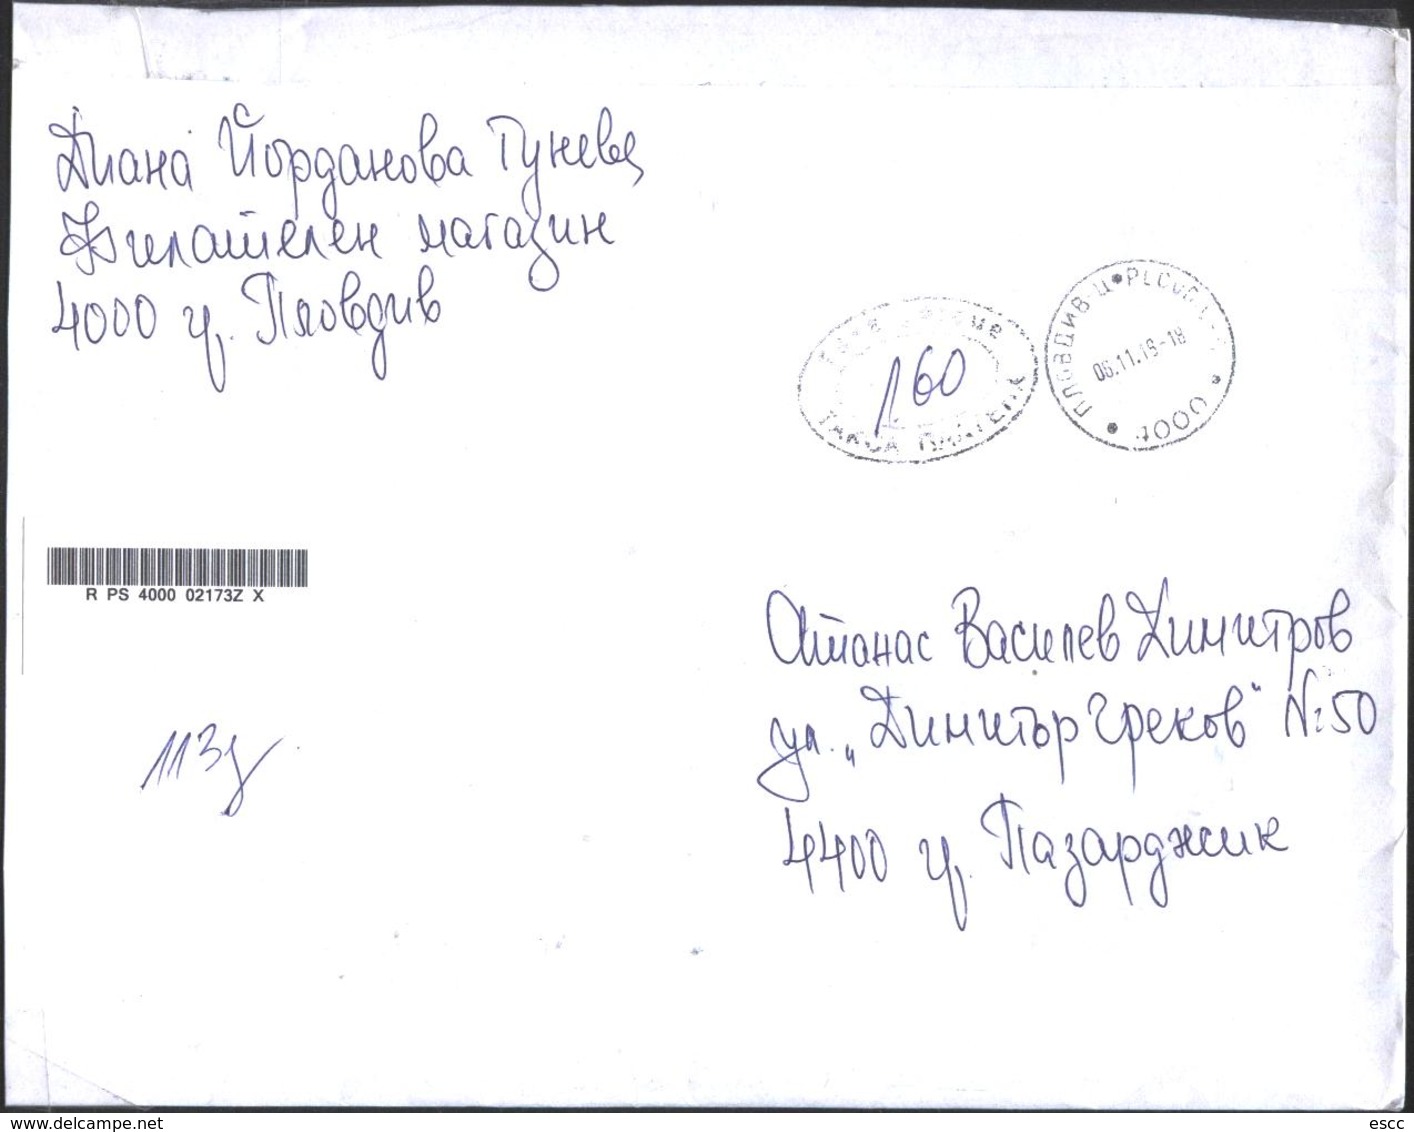 Диана Йорданова Гунева
Филателен магазин
4000 ц. Пловдив
1 60
ТАКСА ПЛАТЕНА
ПЛОВДИВ Ц • PLOVDIV
06.11.18-18
4000
R PS 4000 02173Z X
113g
Атанас Василев Димитров
ул. „Димитър Греков" №50
4400 ц. Пазарджик
www.delcampe.net
escc